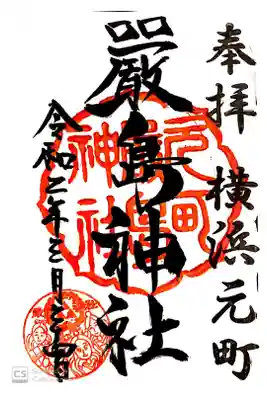 奉拝 横浜元町
嚴島神社
令和二年三月二十四日
CS